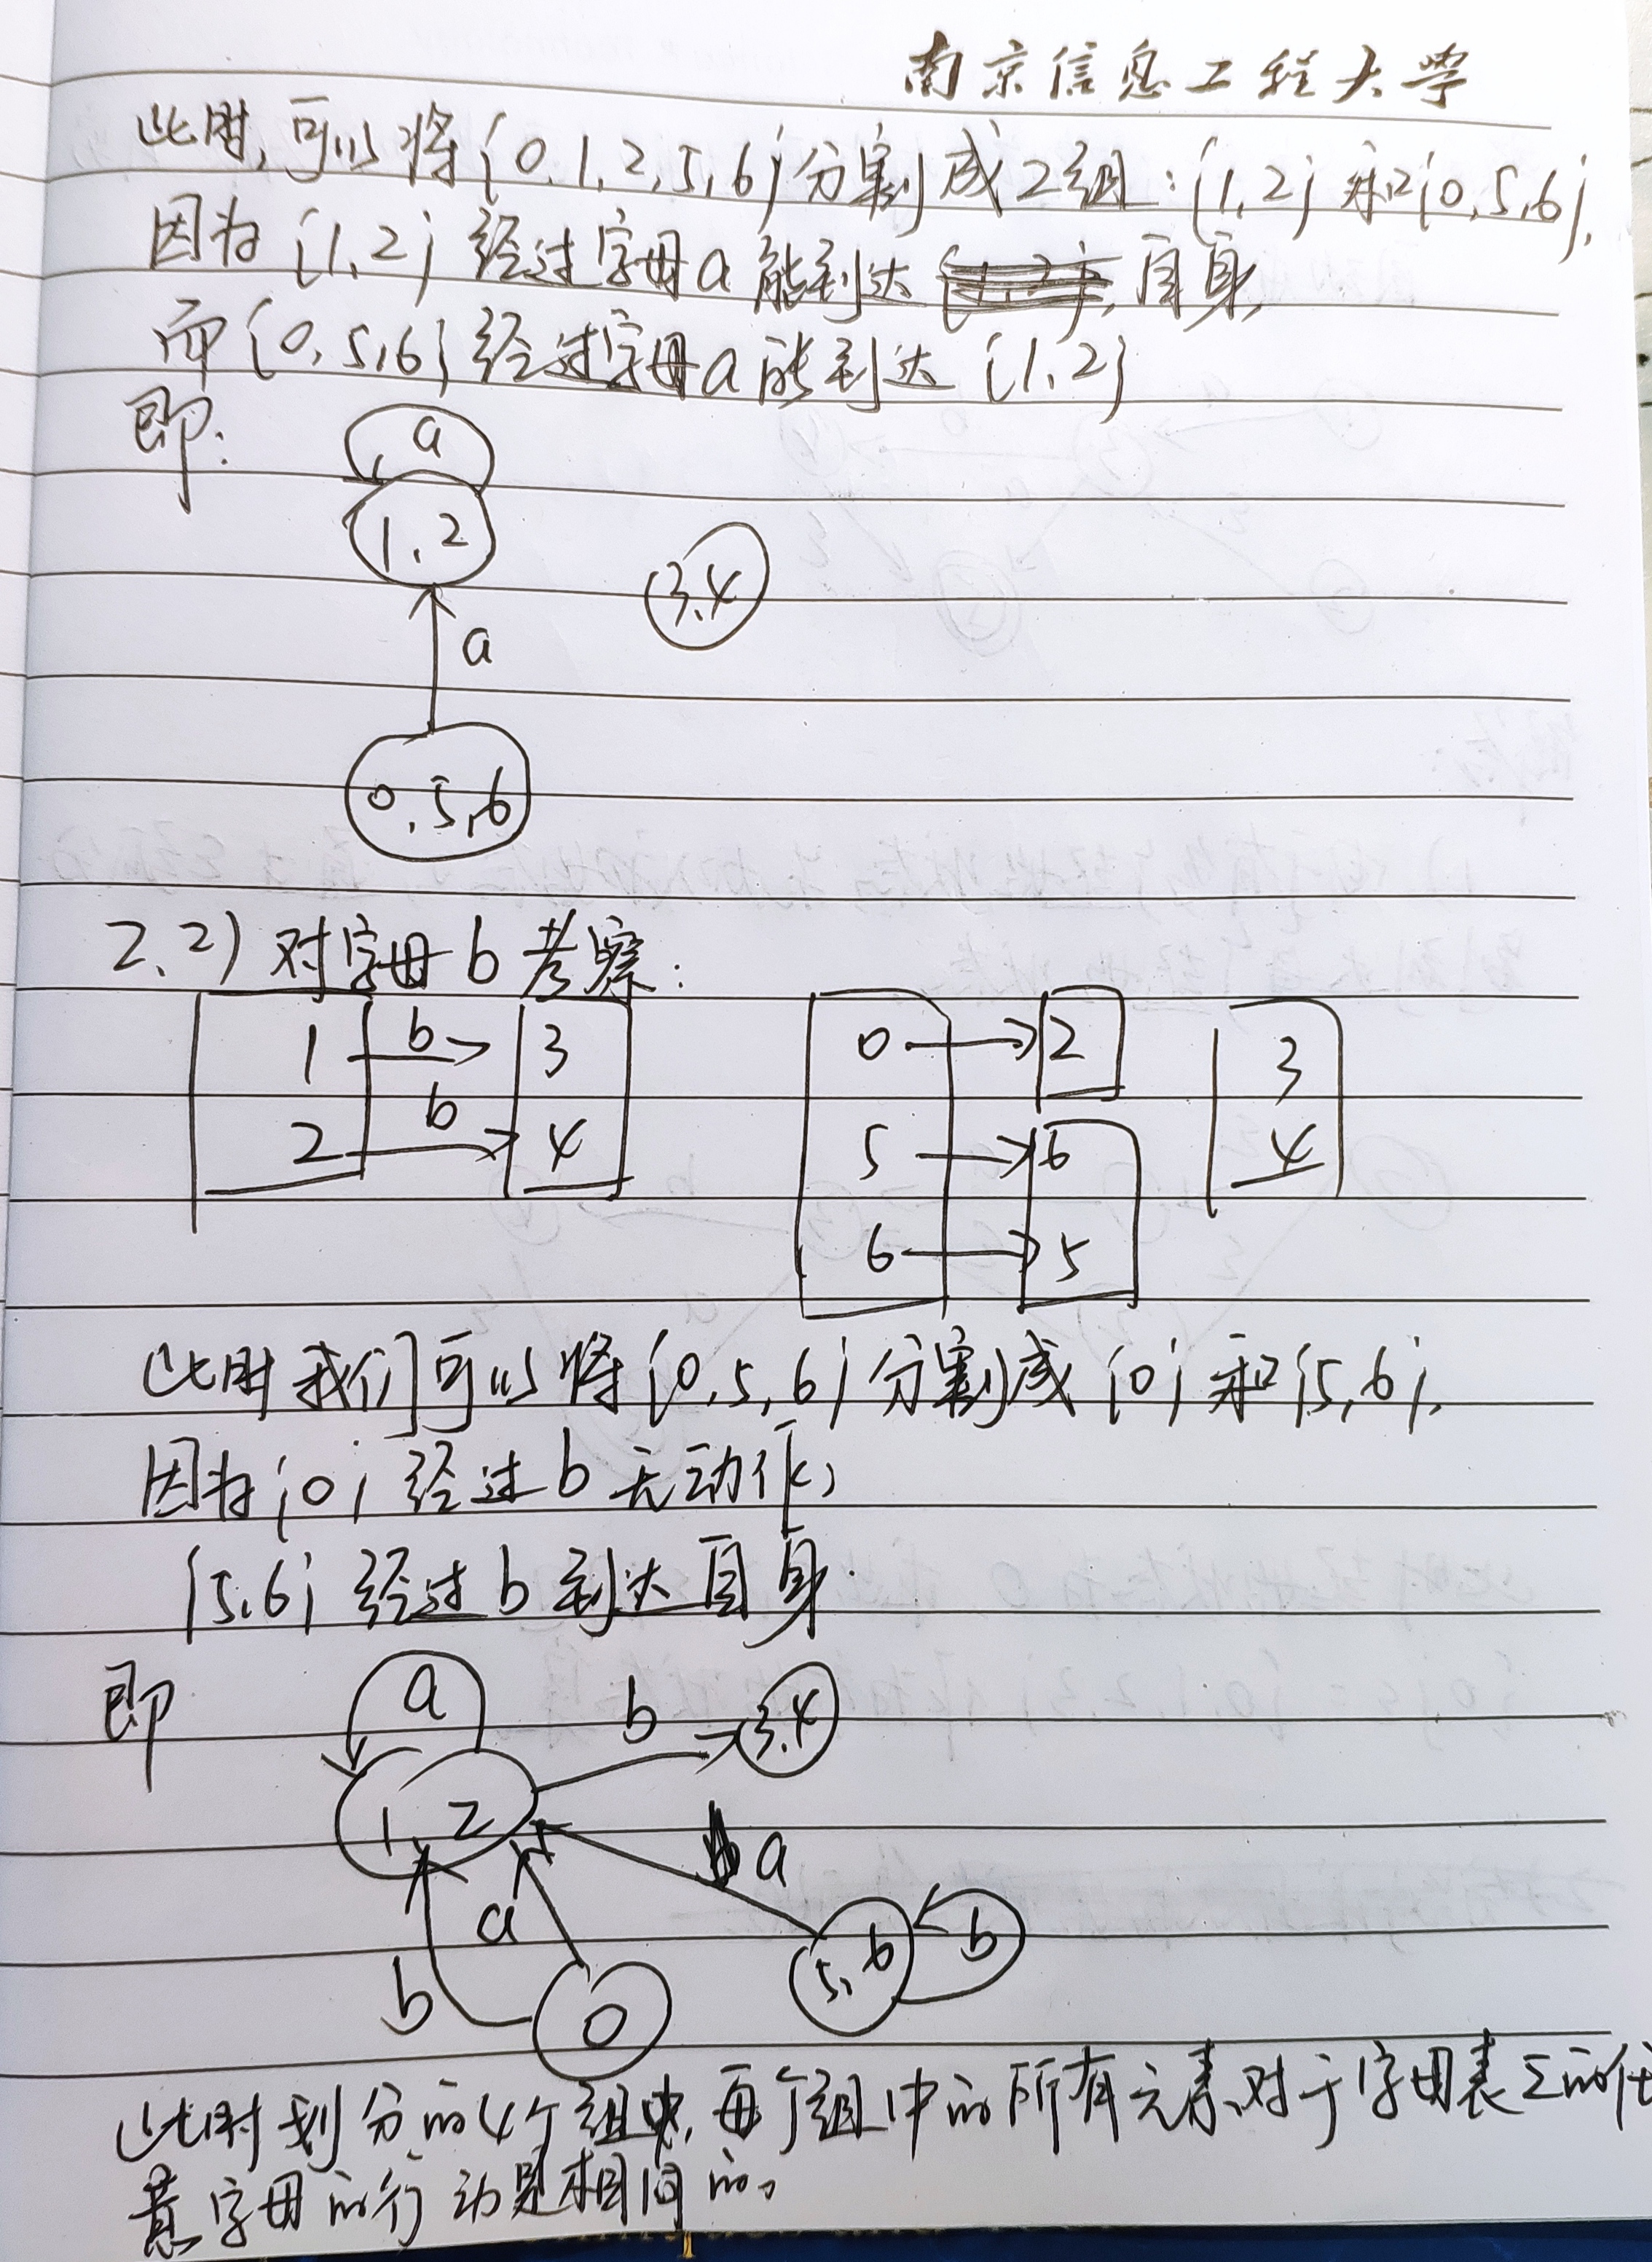 南京信息工程大学
此时,可以将{0,1,2,5,6}分割成2组:{1,2}和{0,5,6},
因为{1,2}经过字母a能到达 自身,
而{0,5,6}经过字母a能到达{1,2}
即:
a
1,2
3,4
a
0,5,6
2.2)对字母b考察:
1 b 3 0 2 3
2 b 4 5 6 4
6 5
此时我们可以将{0,5,6}分割成{0}和{5,6},
因为{0}经过b无动作,
{5,6}经过b到达自身.
即
a b 3,4
1,2
a
a
5,6 b
b 0
此时划分的4个组中,每个组中的所有元素对于字母表Σ的任
意字母的行动是相同的。